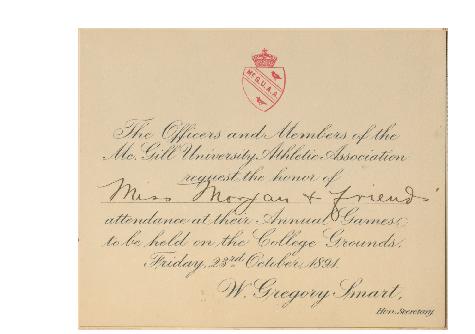 Mc G.U.A.A.
The Officers and Members of the
Mc. Gill University Athletic Association
request the honor of
Miss Morgan & friends'
attendance at their Annual Games,
to be held on the College Grounds,
Friday, 23rd October, 1891.
W. Gregory Smart,
Hon. Secretary